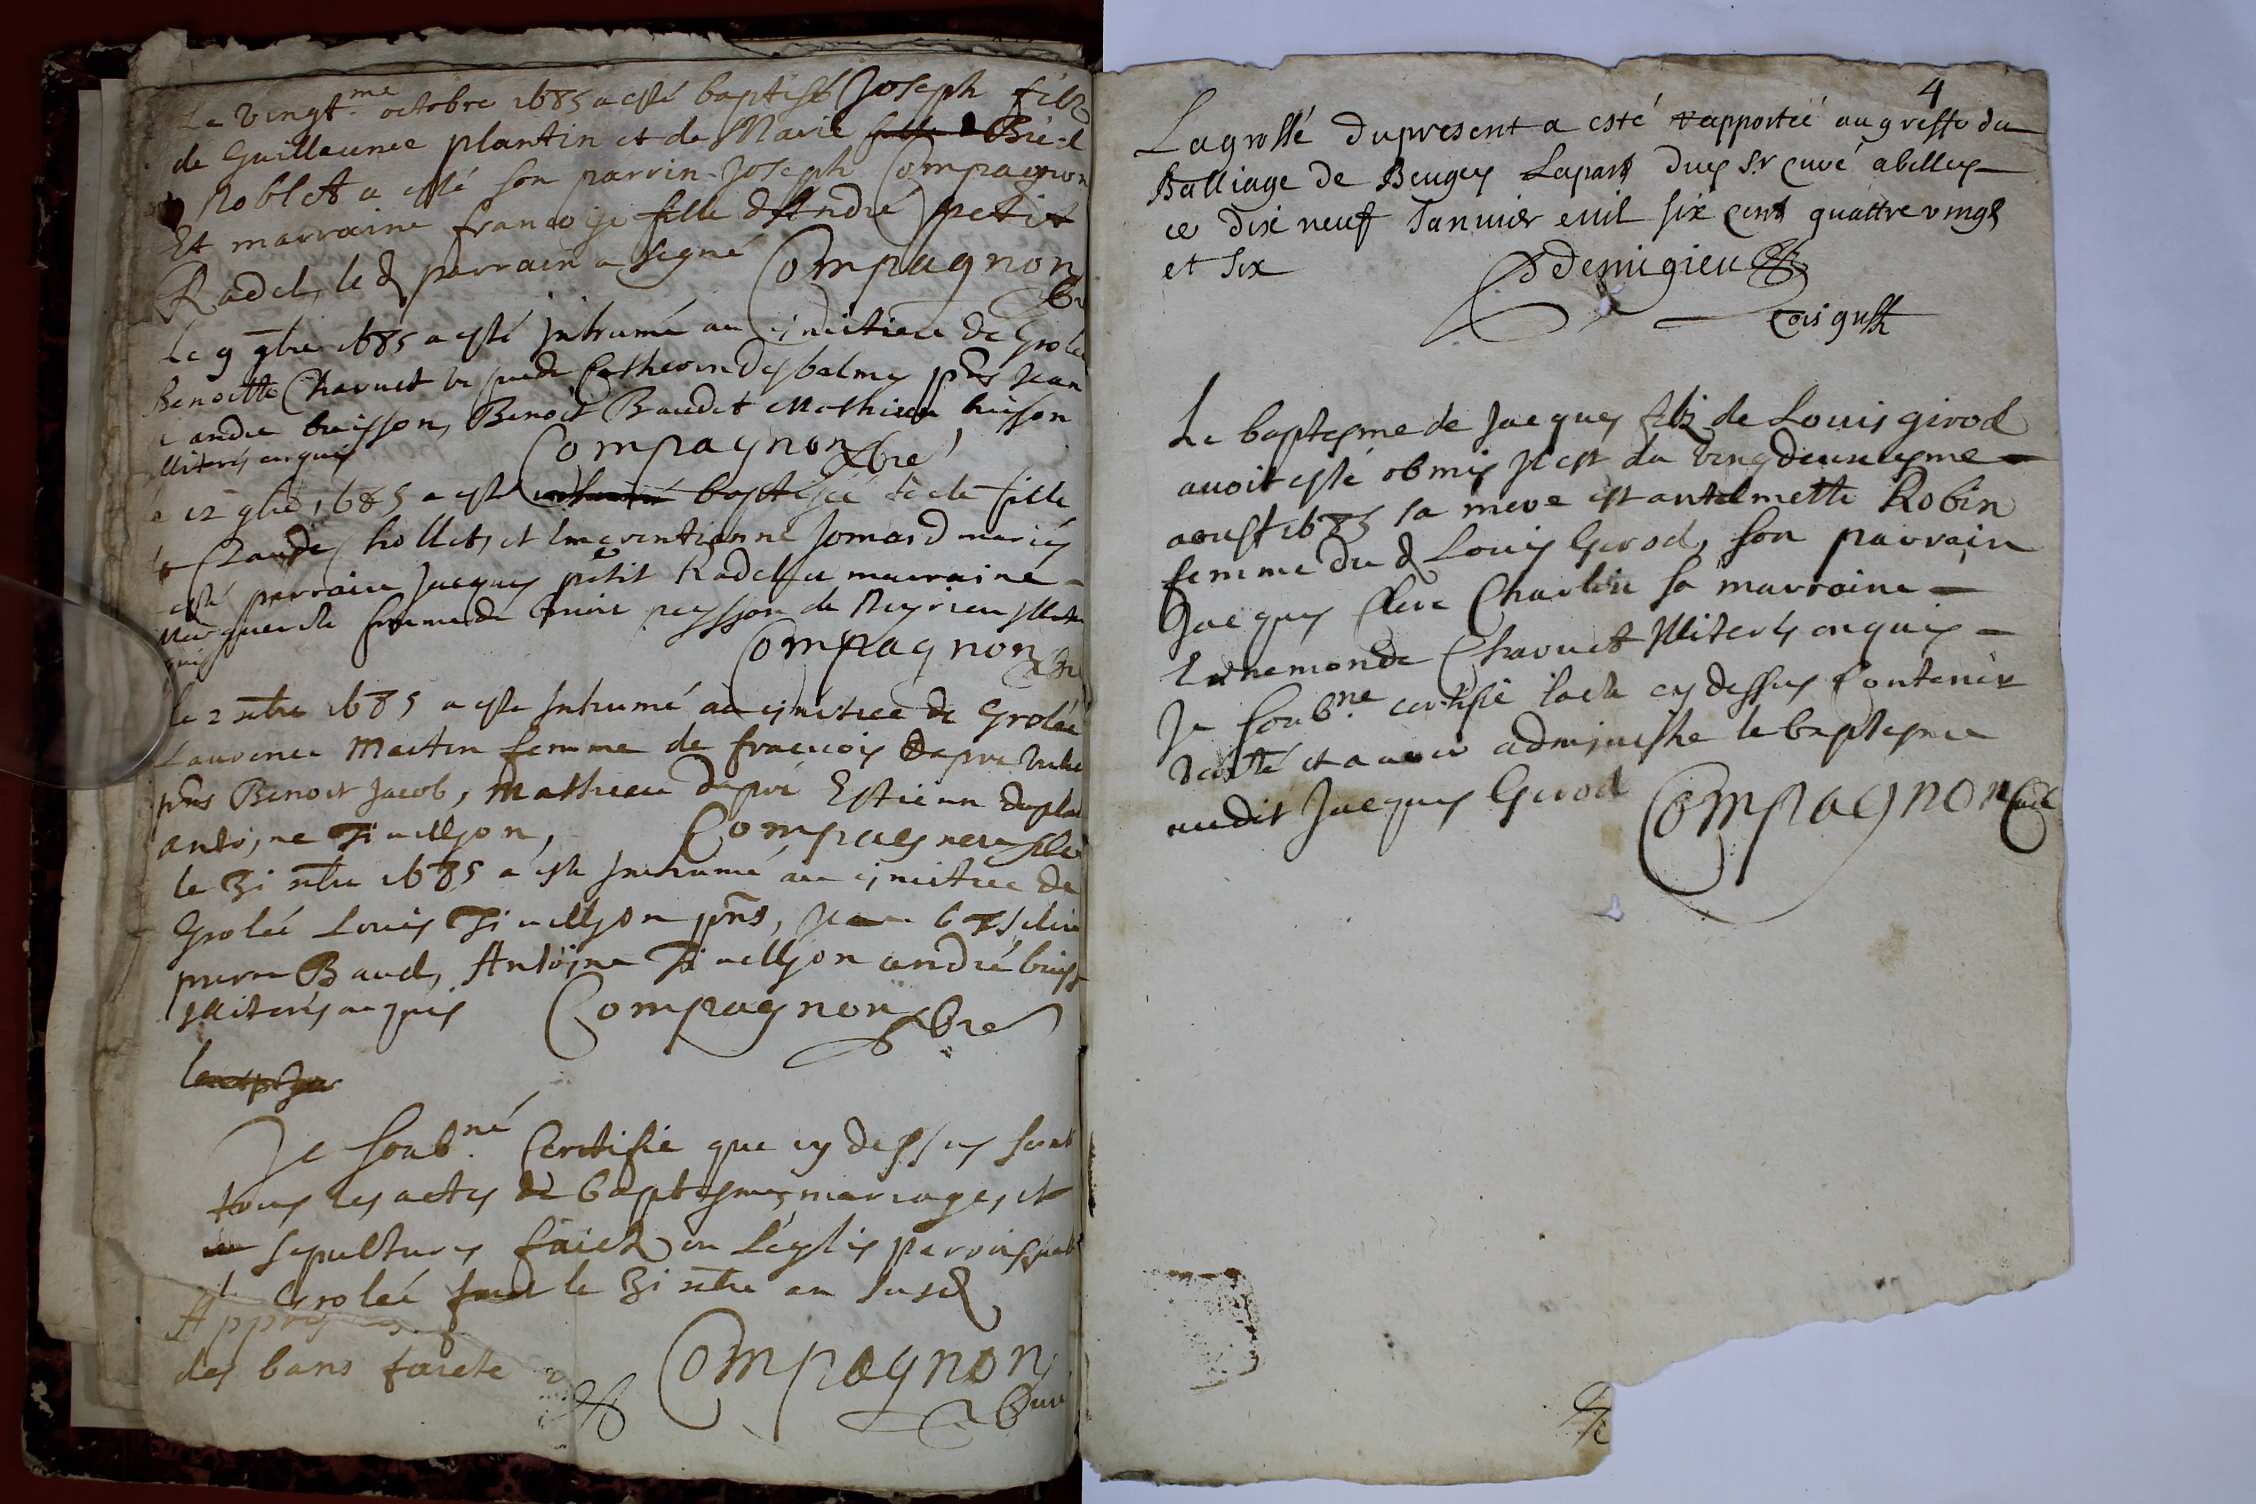 Le vingt.me octobre 1685 a esté baptisé Joseph filz
de Guillaume plantin et de Marie
Noblet a esté son parrin Joseph Compagnon
Et marraine francoise fille d'André petit
Radel, le d parrain a signé Compagnon
le 9 9bre 1685 a esté Inhumé au cimitiere de Grolée
Benoitte Charvet vefve de Catherin Desbalmes pns Jean
andre buisson, Benoit Baudet Mathieu buisson
illiterés enquis Compagnon
12 9bre 1685 a esté baptisée fille
Claude hollet, et Jomard mariés
esté parrain Jacques petit Radel sa marraine
Marguerite femme de peysson de
Compagnon
le 2 xbre 1685 a esté Inhumé au cimitiere de Grolée
Laurence Martin femme de francois
pns Benoit Jacob, Mathieu dupré Estienne
antoine Tivellion, Compagnon
le 31 xbre 1685 a esté Inhumé au cimitiere de
Grolée Louis Tivellion pns, Jean
pierre Baud, Antoine Tivellion andré
illiterés enquis Compagnon
Je soub.né Certifie que cy dessus sont
tous les actes de baptesmes, mariages, et
sepultures faicts en l'eglis
Grolée le 31 xbre an susd
Appres
des bans faicte
Compagnon
Curé
4
La grosse du present a esté rapportée au greffe du
Balliage de Beugey Lapart duy Sr curé
ce dix neuf Janvier mil six cents quattre vingt
et six Demigieu
Le baptesme de Jacques filz de Louis girod
avoit esté obmis Il est du vingdeuxiesme
aoust 1685 sa mere est antelmette Robin
femme du d Louis Girod, son parrain
Jacques Clerc Charlin sa marraine
Charvet illiterés enquis
Je soub.né certifie lacte cy dessus Contenir
verité et avoir administre le baptesme
audit Jacques Girod Compagnon Curé